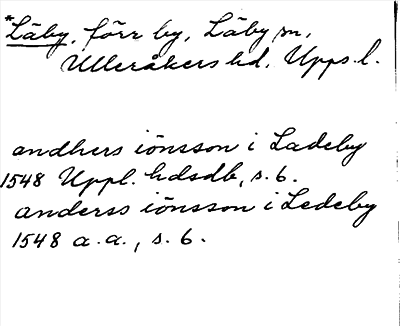 *Läby, förr by, Läby sn,
Ulleråkers hd, Upps. l.
andhers iönsson i Ladeby
1548 Uppl. hdsdb, s. 6.
anderss iönsson i Ledeby
1548 a. a., s. 6.